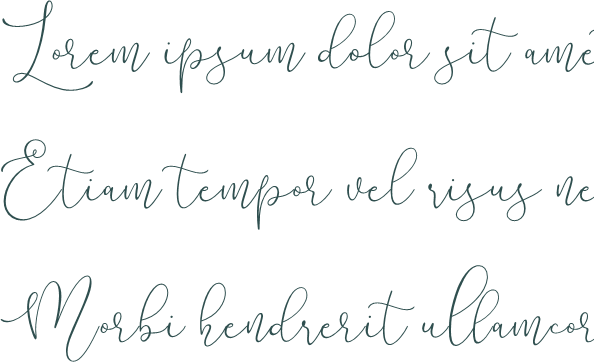 Lorem ipsum dolor sit ame
Etiam tempor vel risus ne
Morbi hendrerit ullamcor